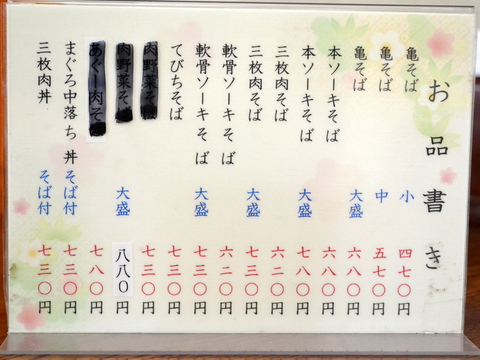 お品書き
亀そば 小 四七〇円
亀そば 中 五七〇円
亀そば 大盛 六八〇円
本ソーキそば 六八〇円
本ソーキそば 大盛 七八〇円
三枚肉そば 六二〇円
三枚肉そば 大盛 七三〇円
軟骨ソーキそば 六二〇円
軟骨ソーキそば 大盛 七三〇円
てびちそば 七三〇円
肉野菜そば 七三〇円
肉野菜そば 大盛 八八〇円
あぐー肉そば 七八〇円
まぐろ中落ち丼 そば付 七三〇円
三枚肉丼 そば付 七三〇円